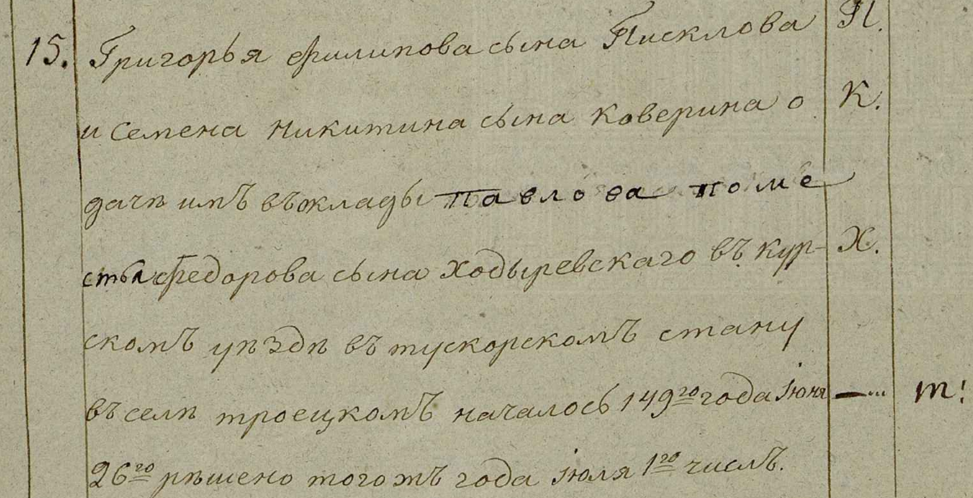 15. Григорья филипова сынаПисклова П.
и семена никитина сына коверина о К.
дачѣ имъ въоклады Павлова поме
стья федорова сына Ходыревскаго въ кур- Х.
скомъ уѣздѣ въ тускорскомъ стану
въ селѣ троецкомъ началось 149го года Июня —... т!
26го рѣшено тогожъ года Июля 1го числъ.